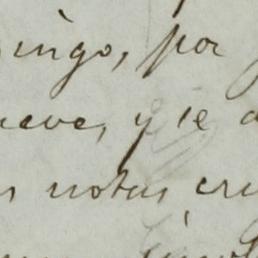 ingo, por
ueve, y se a
s notas cru